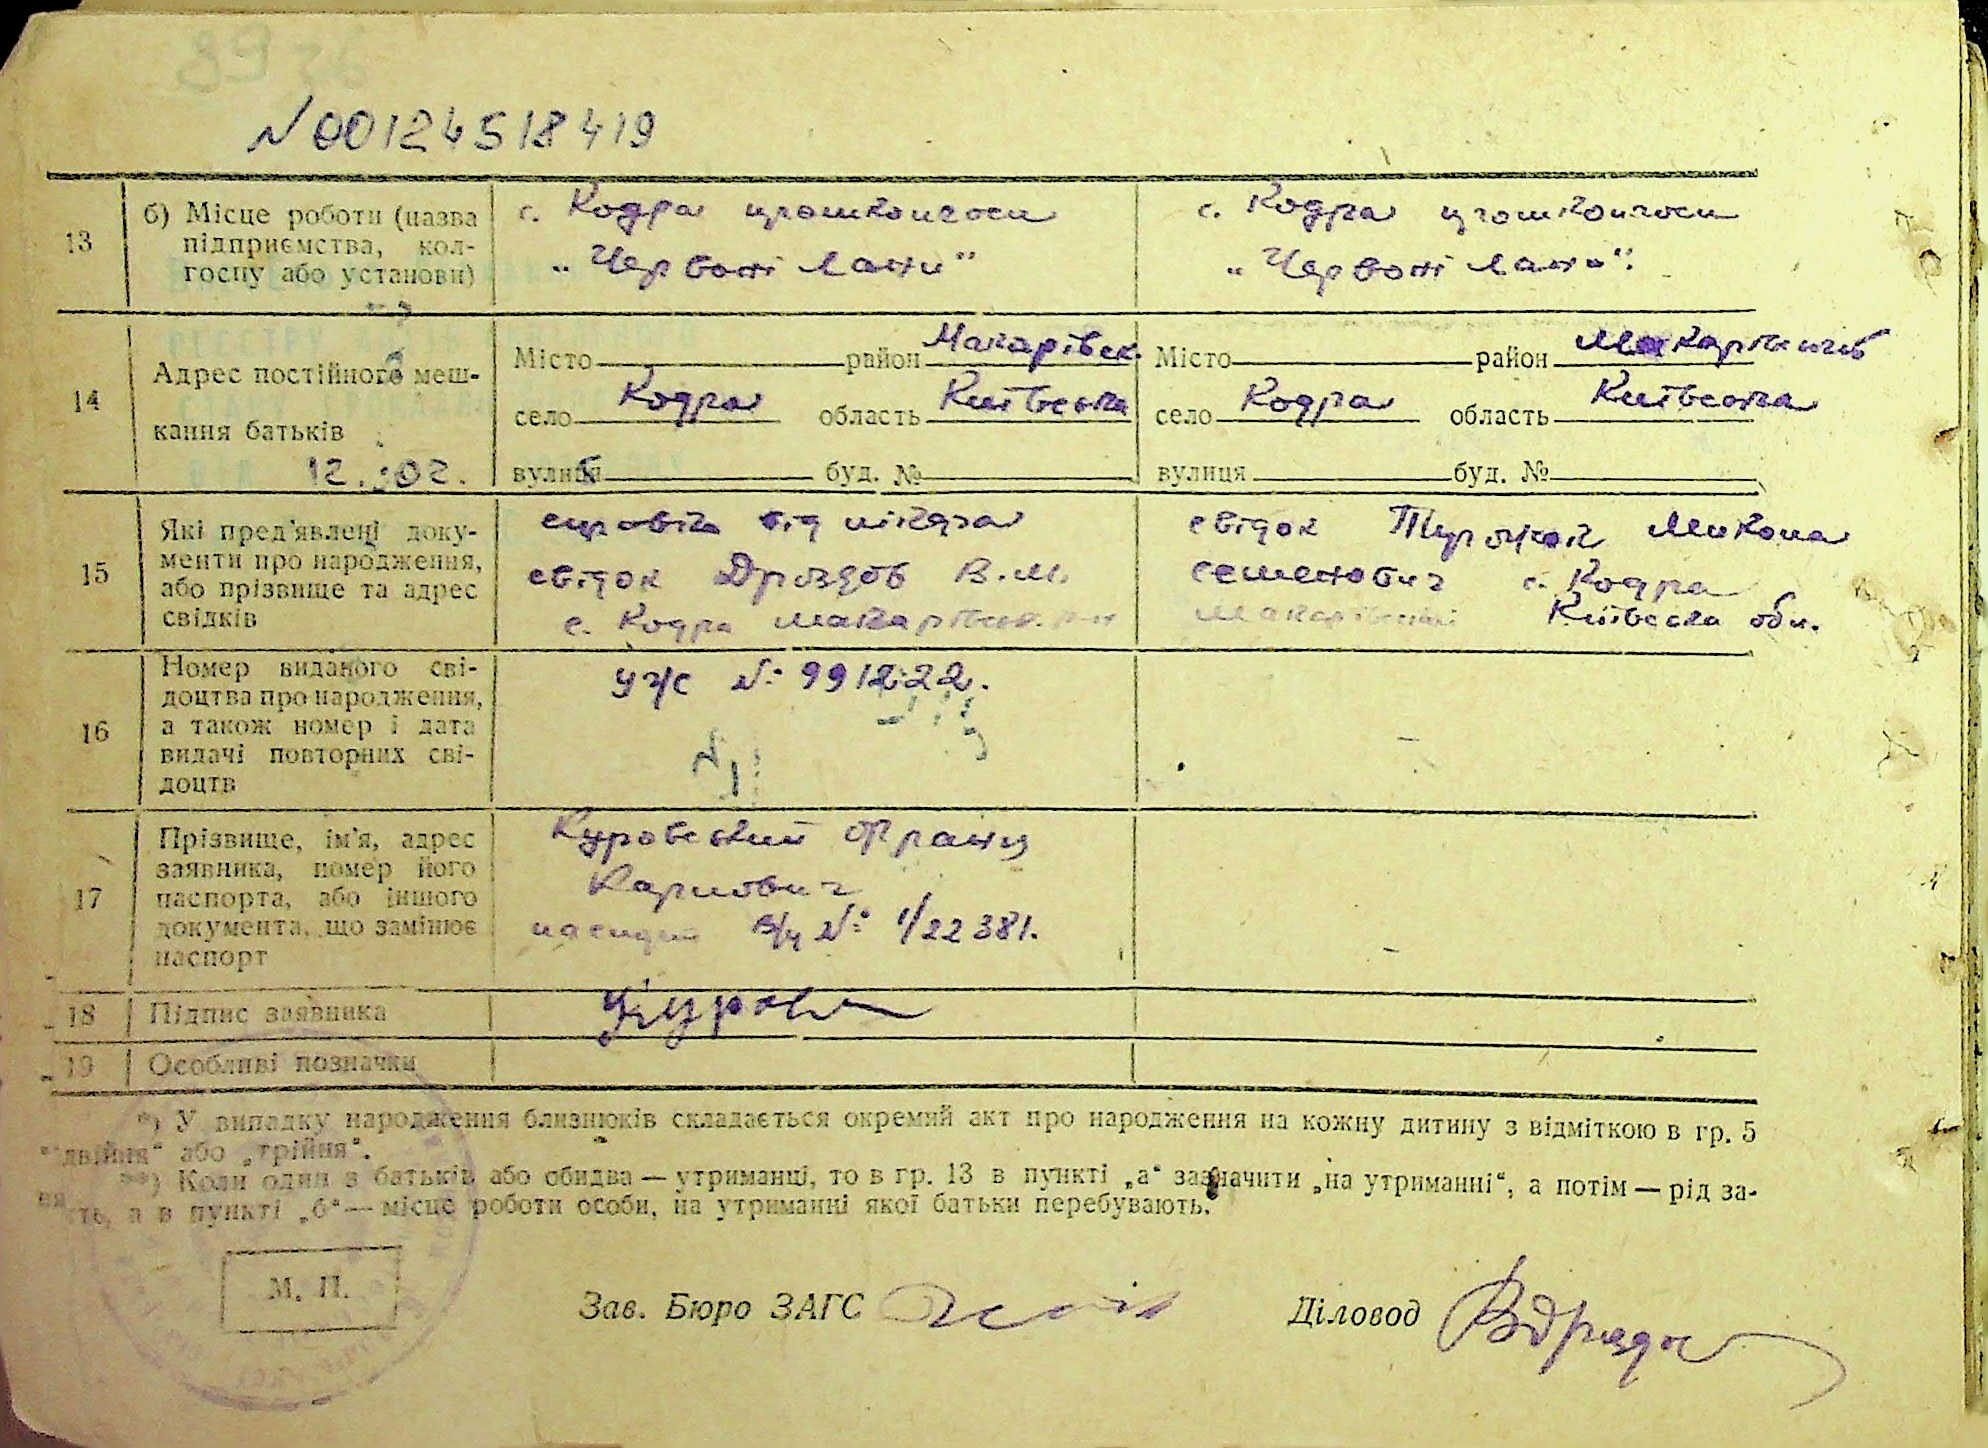 N 00124518419
13
б) Місце роботи (назва підприємства, колгоспу або установи)
с. Кодра
„Червоні лани"
с. Кодра
„Червоні лани".
14
Адрес постійного мешкання батьків
12. 02.
Місто район Макарівськ.
село Кодра область Київська
вулиця буд. №
Місто район
село Кодра область Київська
вулиця буд. №
15
Які пред'явлені документи про народження, або прізвище та адрес свідків
від лікаря
свідок Дроздов В.М.
с. Кодра Макарівськ. р-н
свідок Микола
Семенович с. Кодра
Макарівський Київська обл.
16
Номер виданого свідоцтва про народження, а також номер і дата видачі повторних свідоцтв
УЖ № 991222.
17
Прізвище, ім'я, адрес заявника, номер його паспорта, або іншого документа, що замінює паспорт
Куровський Франц
Карлович
№ 1/22381.
18
Підпис заявника
19
Особливі позначки
*) У випадку народження близнюків складається окремий акт про народження на кожну дитину з відміткою в гр. 5
"двійня" або „трійня".
**) Коли один з батьків або обидва — утриманці, то в гр. 13 в пункті „а" зазначити „на утриманні", а потім — рід за-
а в пункті „б" — місце роботи особи, на утриманні якої батьки перебувають.
М. П.
Зав. Бюро ЗАГС
Діловод